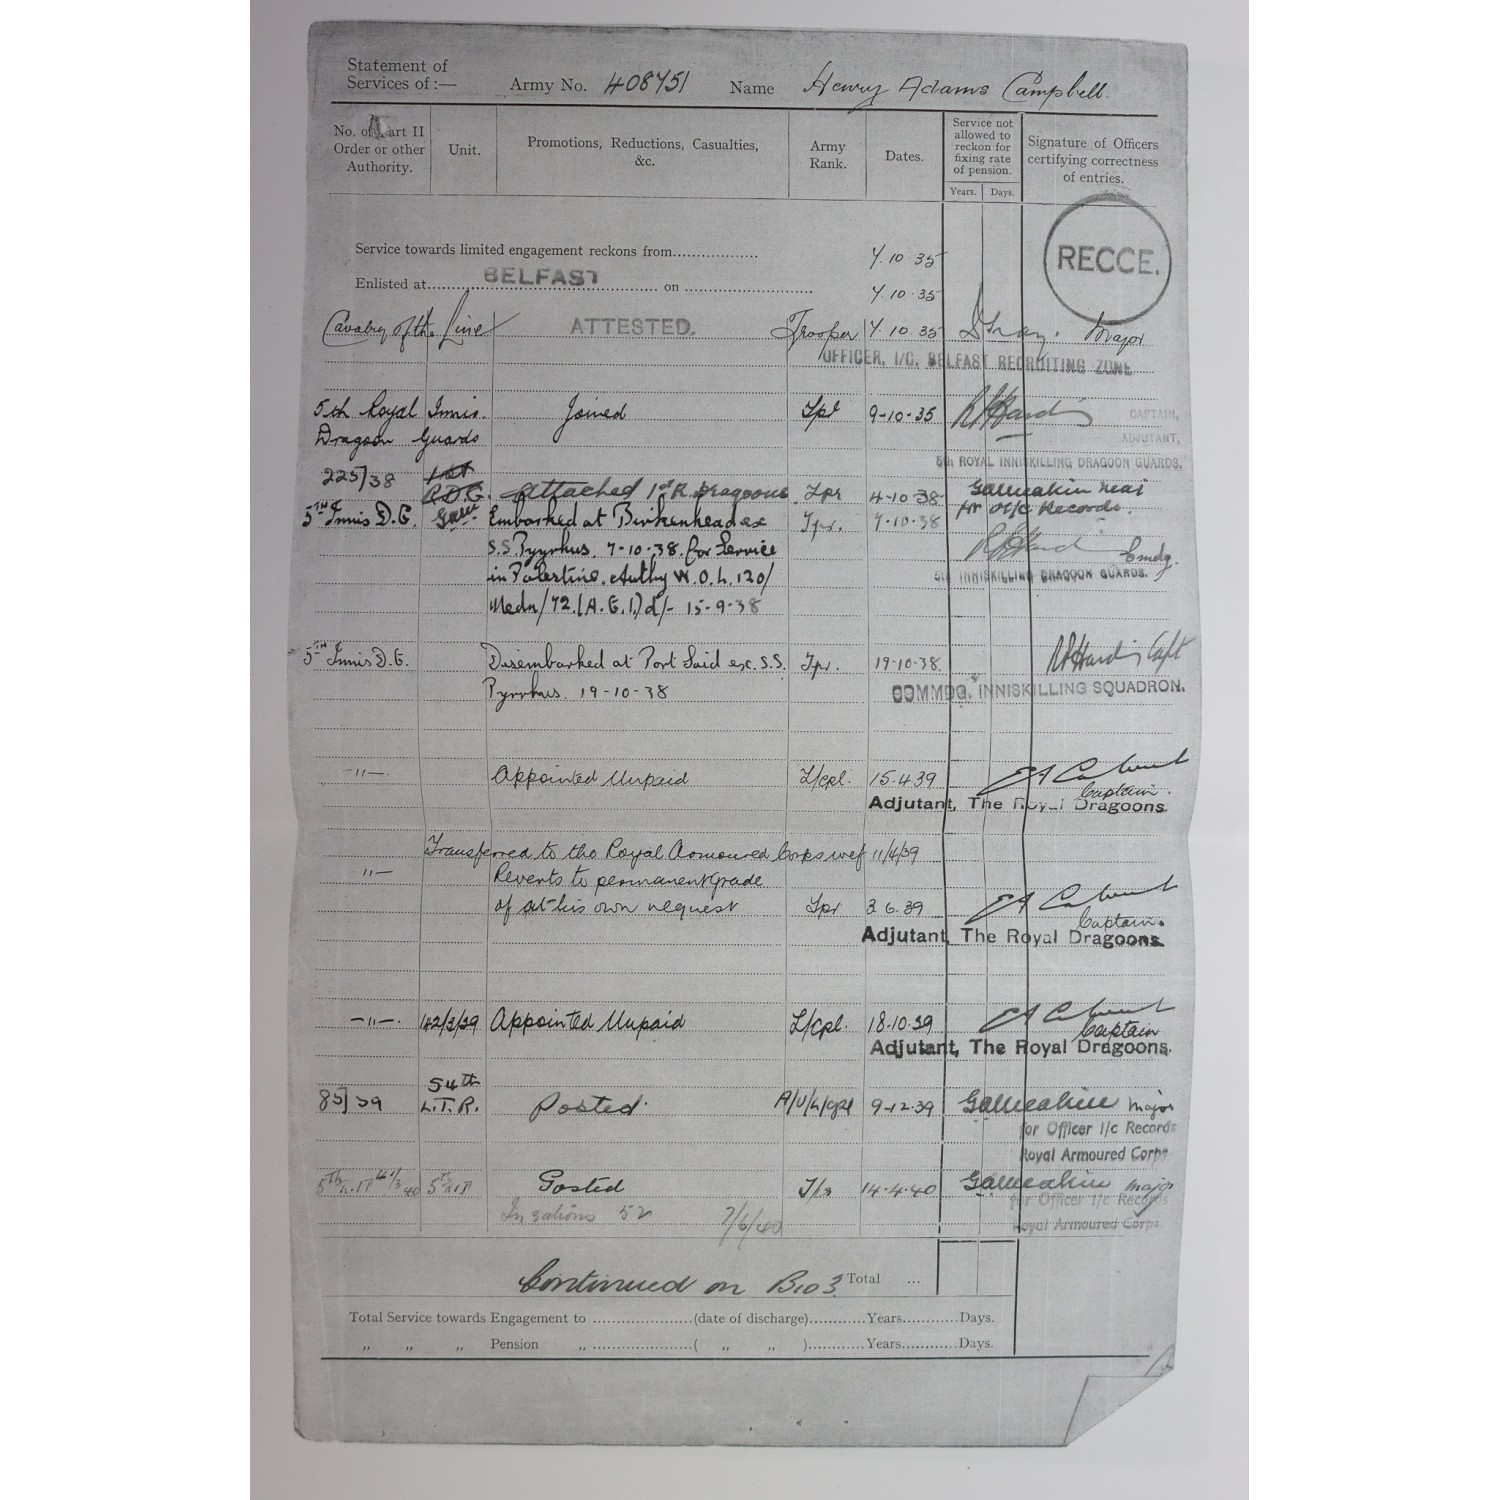 Statement of
Services of :— Army No. 408751 Name Henry Adams Campbell.
No. of Part II Order or other Authority. Unit. Promotions, Reductions, Casualties, &c. Army Rank. Dates. Service not allowed to reckon for fixing rate of pension. Years. Days. Signature of Officers certifying correctness of entries.
RECCE.
Service towards limited engagement reckons from.................. 7.10.35
Enlisted at BELFAST on .................. 7.10.35
Cavalry of the Line ATTESTED. Trooper 7.10.35 Major
OFFICER. I/C. BELFAST RECRUITING ZONE
5th Royal Innis. Joined Tpr 9-10-35 CAPTAIN,
Dragoon Guards ADJUTANT,
5th ROYAL INNISKILLING DRAGOON GUARDS.
225/38 1st
R.D.G. Attached 1st R. Dragoons. Tpr 4-10-38 for O i/c Records.
5TH Innis D.G. Embarked at Birkenhead ex Tpr. 7-10-38
S.S. Pyrrhus. 7-10-38. for Service Cmdg.
in Palestine. Authy W.O.L. 120/ 5th INNISKILLING DRAGOON GUARDS.
Medn/72.(A.G.1.) d/- 15-9-38
5TH Innis D.G. Disembarked at Port Said exc. S.S. Tpr. 19-10-38. R P Harding Capt
Pyrrhus. 19-10-38 COMMDG. INNISKILLING SQUADRON.
—"— Appointed Unpaid L/cpl. 15.4.39
Captain.
Adjutant, The Royal Dragoons.
Transferred to the Royal Armoured Corps wef 11/4/39
"— Reverts to permanent grade
of at his own request Tpr 3 6.39
Captain.
Adjutant, The Royal Dragoons.
—"—. 142/3/39 Appointed Unpaid L/Cpl. 18.10.39
Captain
Adjutant, The Royal Dragoons.
54th
85/39 L.T.R. Posted. A/U/L/Cpl 9-12-39 Major
for Officer I/c Records
Royal Armoured Corps
Posted 14.4.40 Major
for Officer I/c Records
52 7/6/40 Royal Armoured Corps
Continued on B103. Total ...
Total Service towards Engagement to .....................(date of discharge)............Years............Days.
„ „ „ Pension „ .....................( „ „ )............Years............Days.